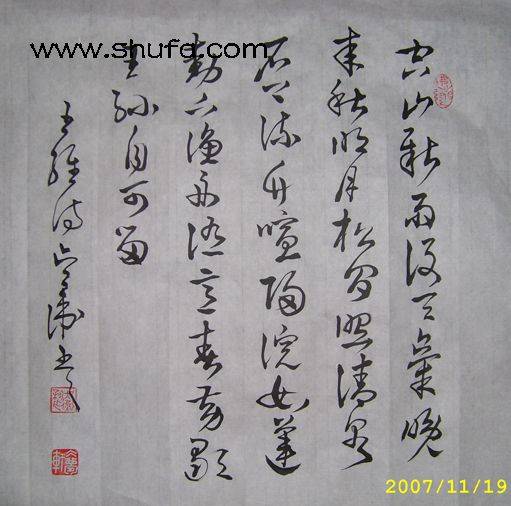 www.shufa.com
空山新雨後天氣晚
来秋明月松間照清泉
石上流竹喧歸浣女蓮
動下漁舟随意春芳歇
王孫自可留
王維詩
2007/11/19